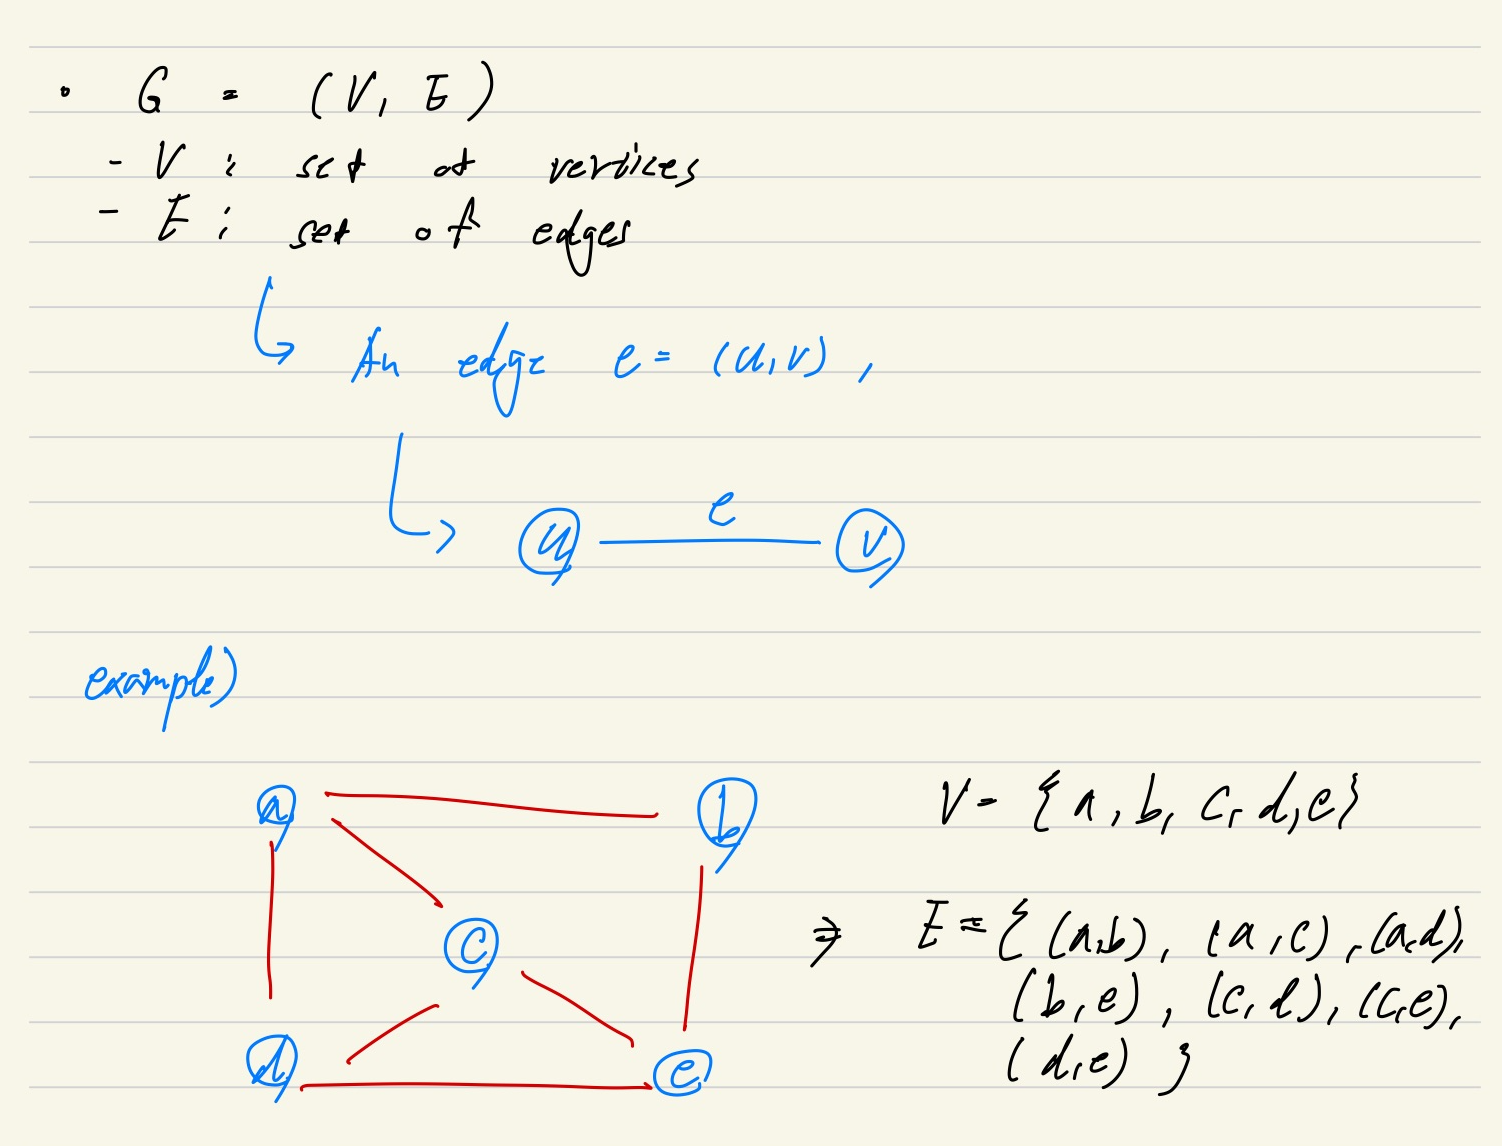 • G = (V, E)
- V : set of vertices
- E : set of edges
↳ An edge e = (u,v) ,
↳ u e v
example)
a b
c
d e
V = {a, b, c, d, e}
⇒ E = { (a,b), (a,c), (a,d),
(b,e), (c,d), (c,e),
(d,e) }